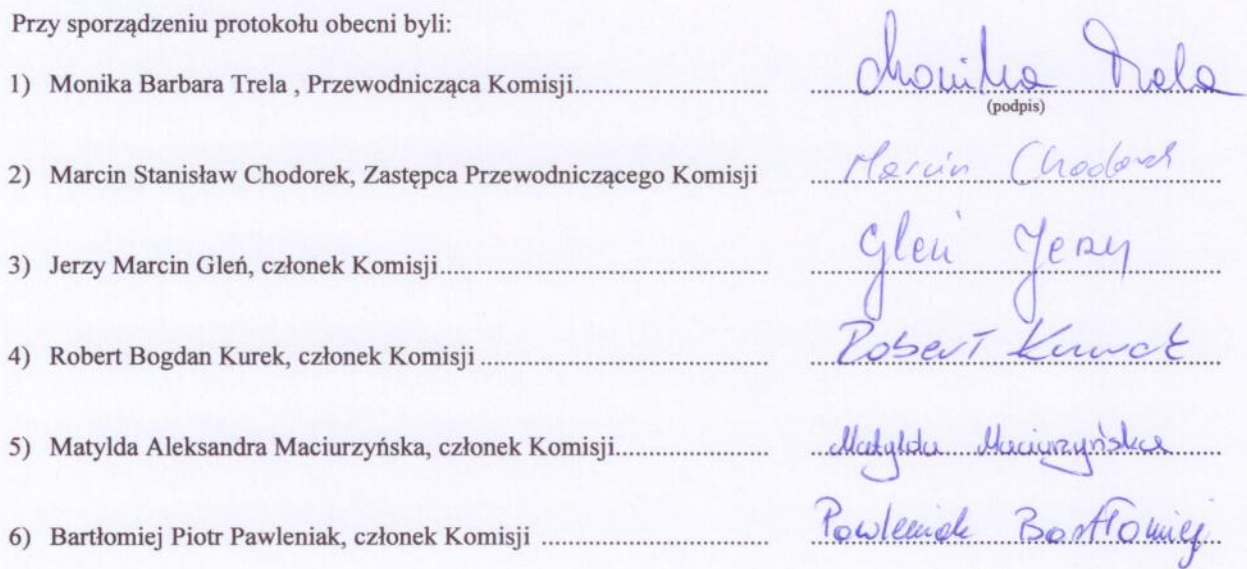 Przy sporządzeniu protokołu obecni byli:
1) Monika Barbara Trela , Przewodnicząca Komisji.............................. Monika Trela
(podpis)
2) Marcin Stanisław Chodorek, Zastępca Przewodniczącego Komisji Marcin Chodorek
3) Jerzy Marcin Gleń, członek Komisji.................................................... Gleń Jerzy
4) Robert Bogdan Kurek, członek Komisji............................................. Robert Kurek
5) Matylda Aleksandra Maciurzyńska, członek Komisji........................ Matylda Maciurzyńska
6) Bartłomiej Piotr Pawleniak, członek Komisji .................................... Pawleniak Bartłomiej